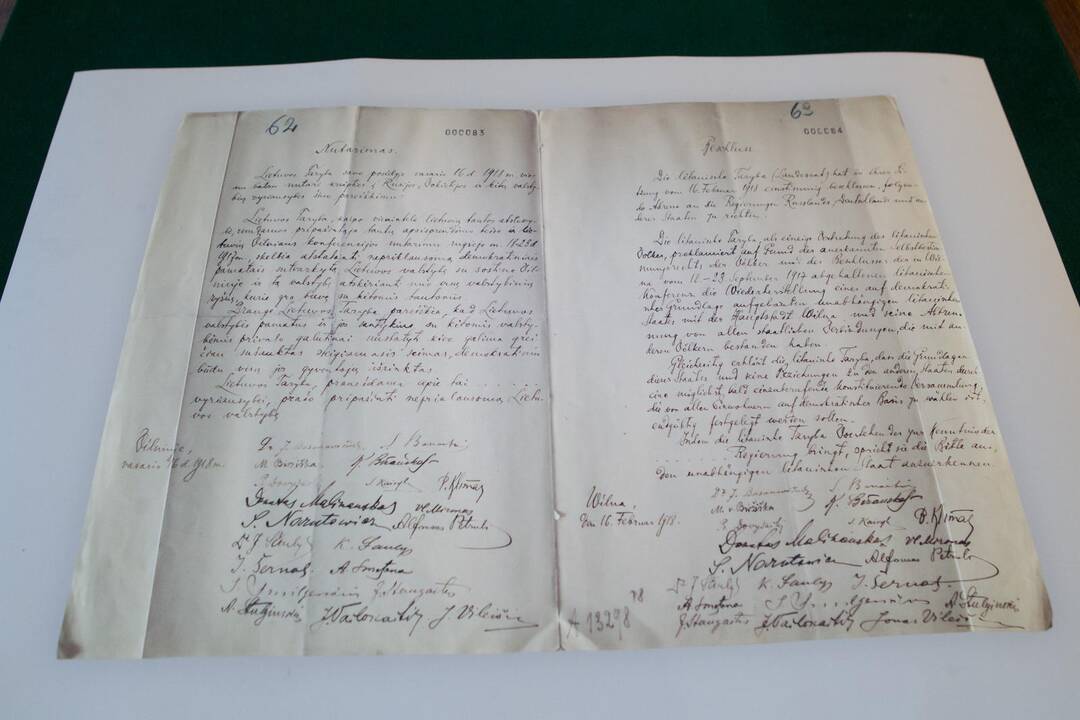 62
000083
Nutarimas.
Lietuvos Taryba savo posėdyje vasario 16 d. 1918 m. vie-
nu balsu nutarė kreiptis į Rusijos, Vokietijos ir kitų valsty-
bių vyriausybes šiuo pareiškimu:
Lietuvos Taryba, kaipo vienintelė lietuvių tautos atstovy-
bė, remdamos pripažintąja tautų apsisprendimo teise ir lie-
tuvių Vilniaus konferencijos nutarimu rugsėjo m. 18-23 d.
1917 m., skelbia atstatanti nepriklausomą demokratiniais
pamatais sutvarkytą Lietuvos valstybę su sostine Vil-
niuje ir tą valstybę atskirianti nuo visų valstybinių
ryšių, kurie yra buvę su kitomis tautomis.
Drauge Lietuvos Taryba pareiškia, kad Lietuvos
valstybės pamatus ir jos santykius su kitomis valsty-
bėmis privalo galutinai nustatyti kiek galima grei-
čiau sušauktas steigiamasis seimas, demokratiniu
būdu visų jos gyventojų išrinktas.
Lietuvos Taryba, pranešdama apie tai . . . . . . . .
vyriausybei, prašo pripažinti nepriklausomą Lietu-
vos valstybę.
Vilniuje,
vasario 16 d. 1918 m.
Dr. J. Basanavičius S. Banaitis
M. Biržiška K. Bizauskas
P. Dovydaitis S. Kairys P. Klimas
Donatas Malinauskas Vl. Mironas
S. Narutowicz Alfonsas Petrulis
Dr. J. Šaulys K. Šaulys
J. Šernas A. Smetona
J. Smilgevičius J. Staugaitis
A. Stulginskis J. Vailokaitis J. Vileišis
63
000084
Beschluss
Die litauische Taryba (Landesrat) hat in ihrer Sit-
zung vom 16. Februar 1918 einstimmig beschlossen, folgen-
de Adresse an die Regierungen Russlands, Deutschlands und an-
derer Staaten zu richten:
Die litauische Taryba, als einzige Vertretung des litauischen
Volkes, proklamiert auf Grund des anerkannten Selbstbestim-
mungsrechts der Völker und des Beschlusses der in Wil-
na vom 18-23 September 1917 abgehaltenen litauischen
Konferenz die Wiederherstellung eines auf demokrati-
scher Grundlage aufgebauten unabhängigen litauischen
Staates mit der Hauptstadt Wilna und seine Abtren-
nung von allen staatlichen Verbindungen, die mit an-
deren Völkern bestanden haben.
Gleichzeitig erklärt die litauische Taryba, dass die Grundlagen
dieses Staates und seine Beziehungen zu den anderen Staaten durch
eine möglichst bald einzuberufende konstituierende Versammlung,
die von allen Einwohnern auf demokratischer Basis zu wählen ist,
endgültig festgelegt werden sollen.
Indem die litauische Taryba Vorstehendes zur Kenntnis der
. . . . . . . . Regierung bringt, spricht sie die Bitte aus,
den unabhängigen litauischen Staat anzuerkennen.
Wilna,
den 16. Februar 1918.
Dr J. Basanavičius S. Banaitis
M. Biržiška K. Bizauskas
P. Dovydaitis S. Kairys P. Klimas
Donatas Malinauskas Vl. Mironas
S. Narutowicz Alfonsas Petrulis
Dr. J. Šaulys K. Šaulys J. Šernas
A. Smetona J. Smilgevičius A. Stulginskis
J. Staugaitis J. Vailokaitis Jonas Vileišis
A 13298